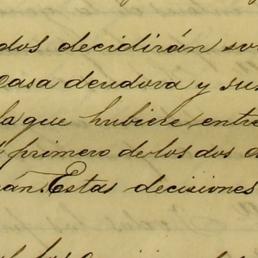 dos decidirán so
casa deudora y su
la que hubiere entre
primero de los dos
rán. Estas decisiones